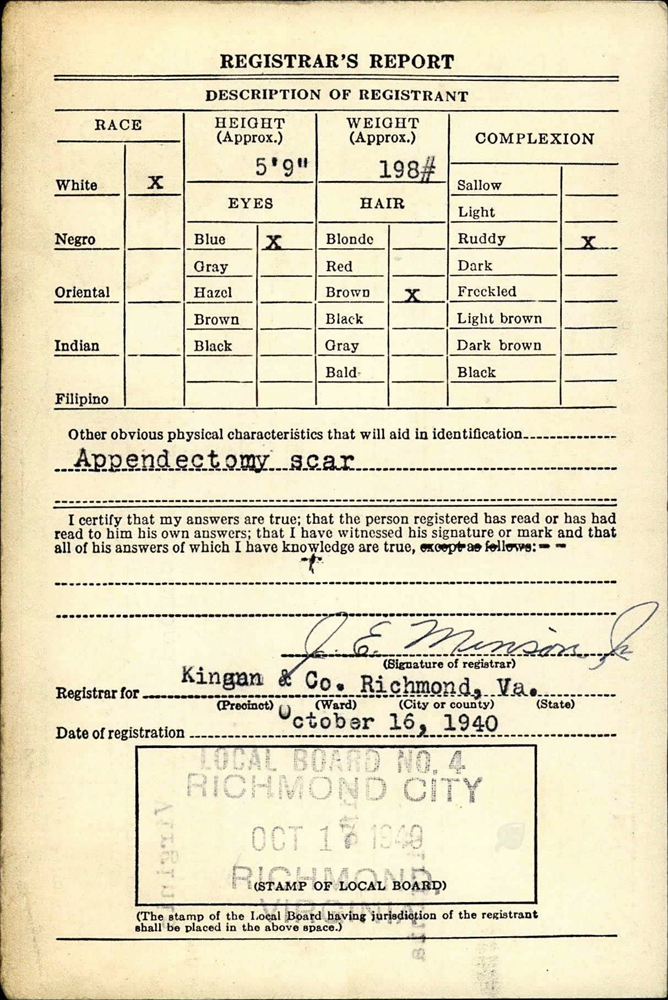 REGISTRAR'S REPORT
DESCRIPTION OF REGISTRANT
RACE
HEIGHT (Approx.)
WEIGHT (Approx.)
COMPLEXION
5'9"
198#
White X
Sallow
EYES
HAIR
Light
Negro
Blue X
Blonde
Ruddy X
Gray
Red
Dark
Oriental
Hazel
Brown X
Freckled
Brown
Black
Light brown
Indian
Black
Gray
Dark brown
Bald
Black
Filipino
Other obvious physical characteristics that will aid in identification
Appendectomy scar
I certify that my answers are true; that the person registered has read or has had
read to him his own answers; that I have witnessed his signature or mark and that
all of his answers of which I have knowledge are true, except as follows:
J. E. Minson, Jr
(Signature of registrar)
Registrar for Kingan & Co. Richmond, Va.
(Precinct) (Ward) (City or county) (State)
Date of registration October 16, 1940
LOCAL BOARD NO. 4
RICHMOND CITY
OCT 1 1940
RICHMOND,
(STAMP OF LOCAL BOARD)
VIRGINIA
(The stamp of the Local Board having jurisdiction of the registrant
shall be placed in the above space.)